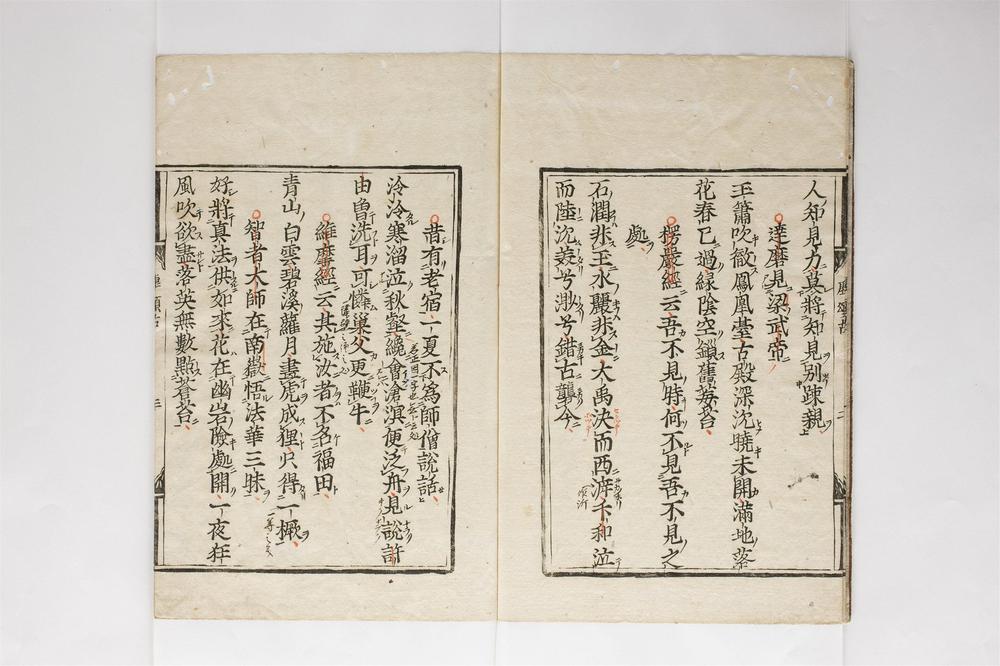 人知見力莫將知見別疎親
達磨見梁武帝
玉簫吹徹鳳凰臺古殿深沈曉未開滿地落
花春已過緑陰空鎖舊莓苔
楞嚴經云吾不見時何不見吾不見之
處
石潤非玉水麗非金大禹決而西泝卞和泣
而陸沈羙兮渺兮錯古襲今
昔有老宿一夏不爲師僧說話
泠泠寒溜泣秋壑纔會滄溟便泛舟見說許
由曽洗耳可憐巢父更鞭牛
維摩經云其施汝者不名福田
青山白雲碧溪蘿月畫虎成狸只得一橛
智者大師在南嶽悟法華三昧
好將真法供如來花在幽岩險處開一夜狂
風吹欲盡落英無數點蒼苔